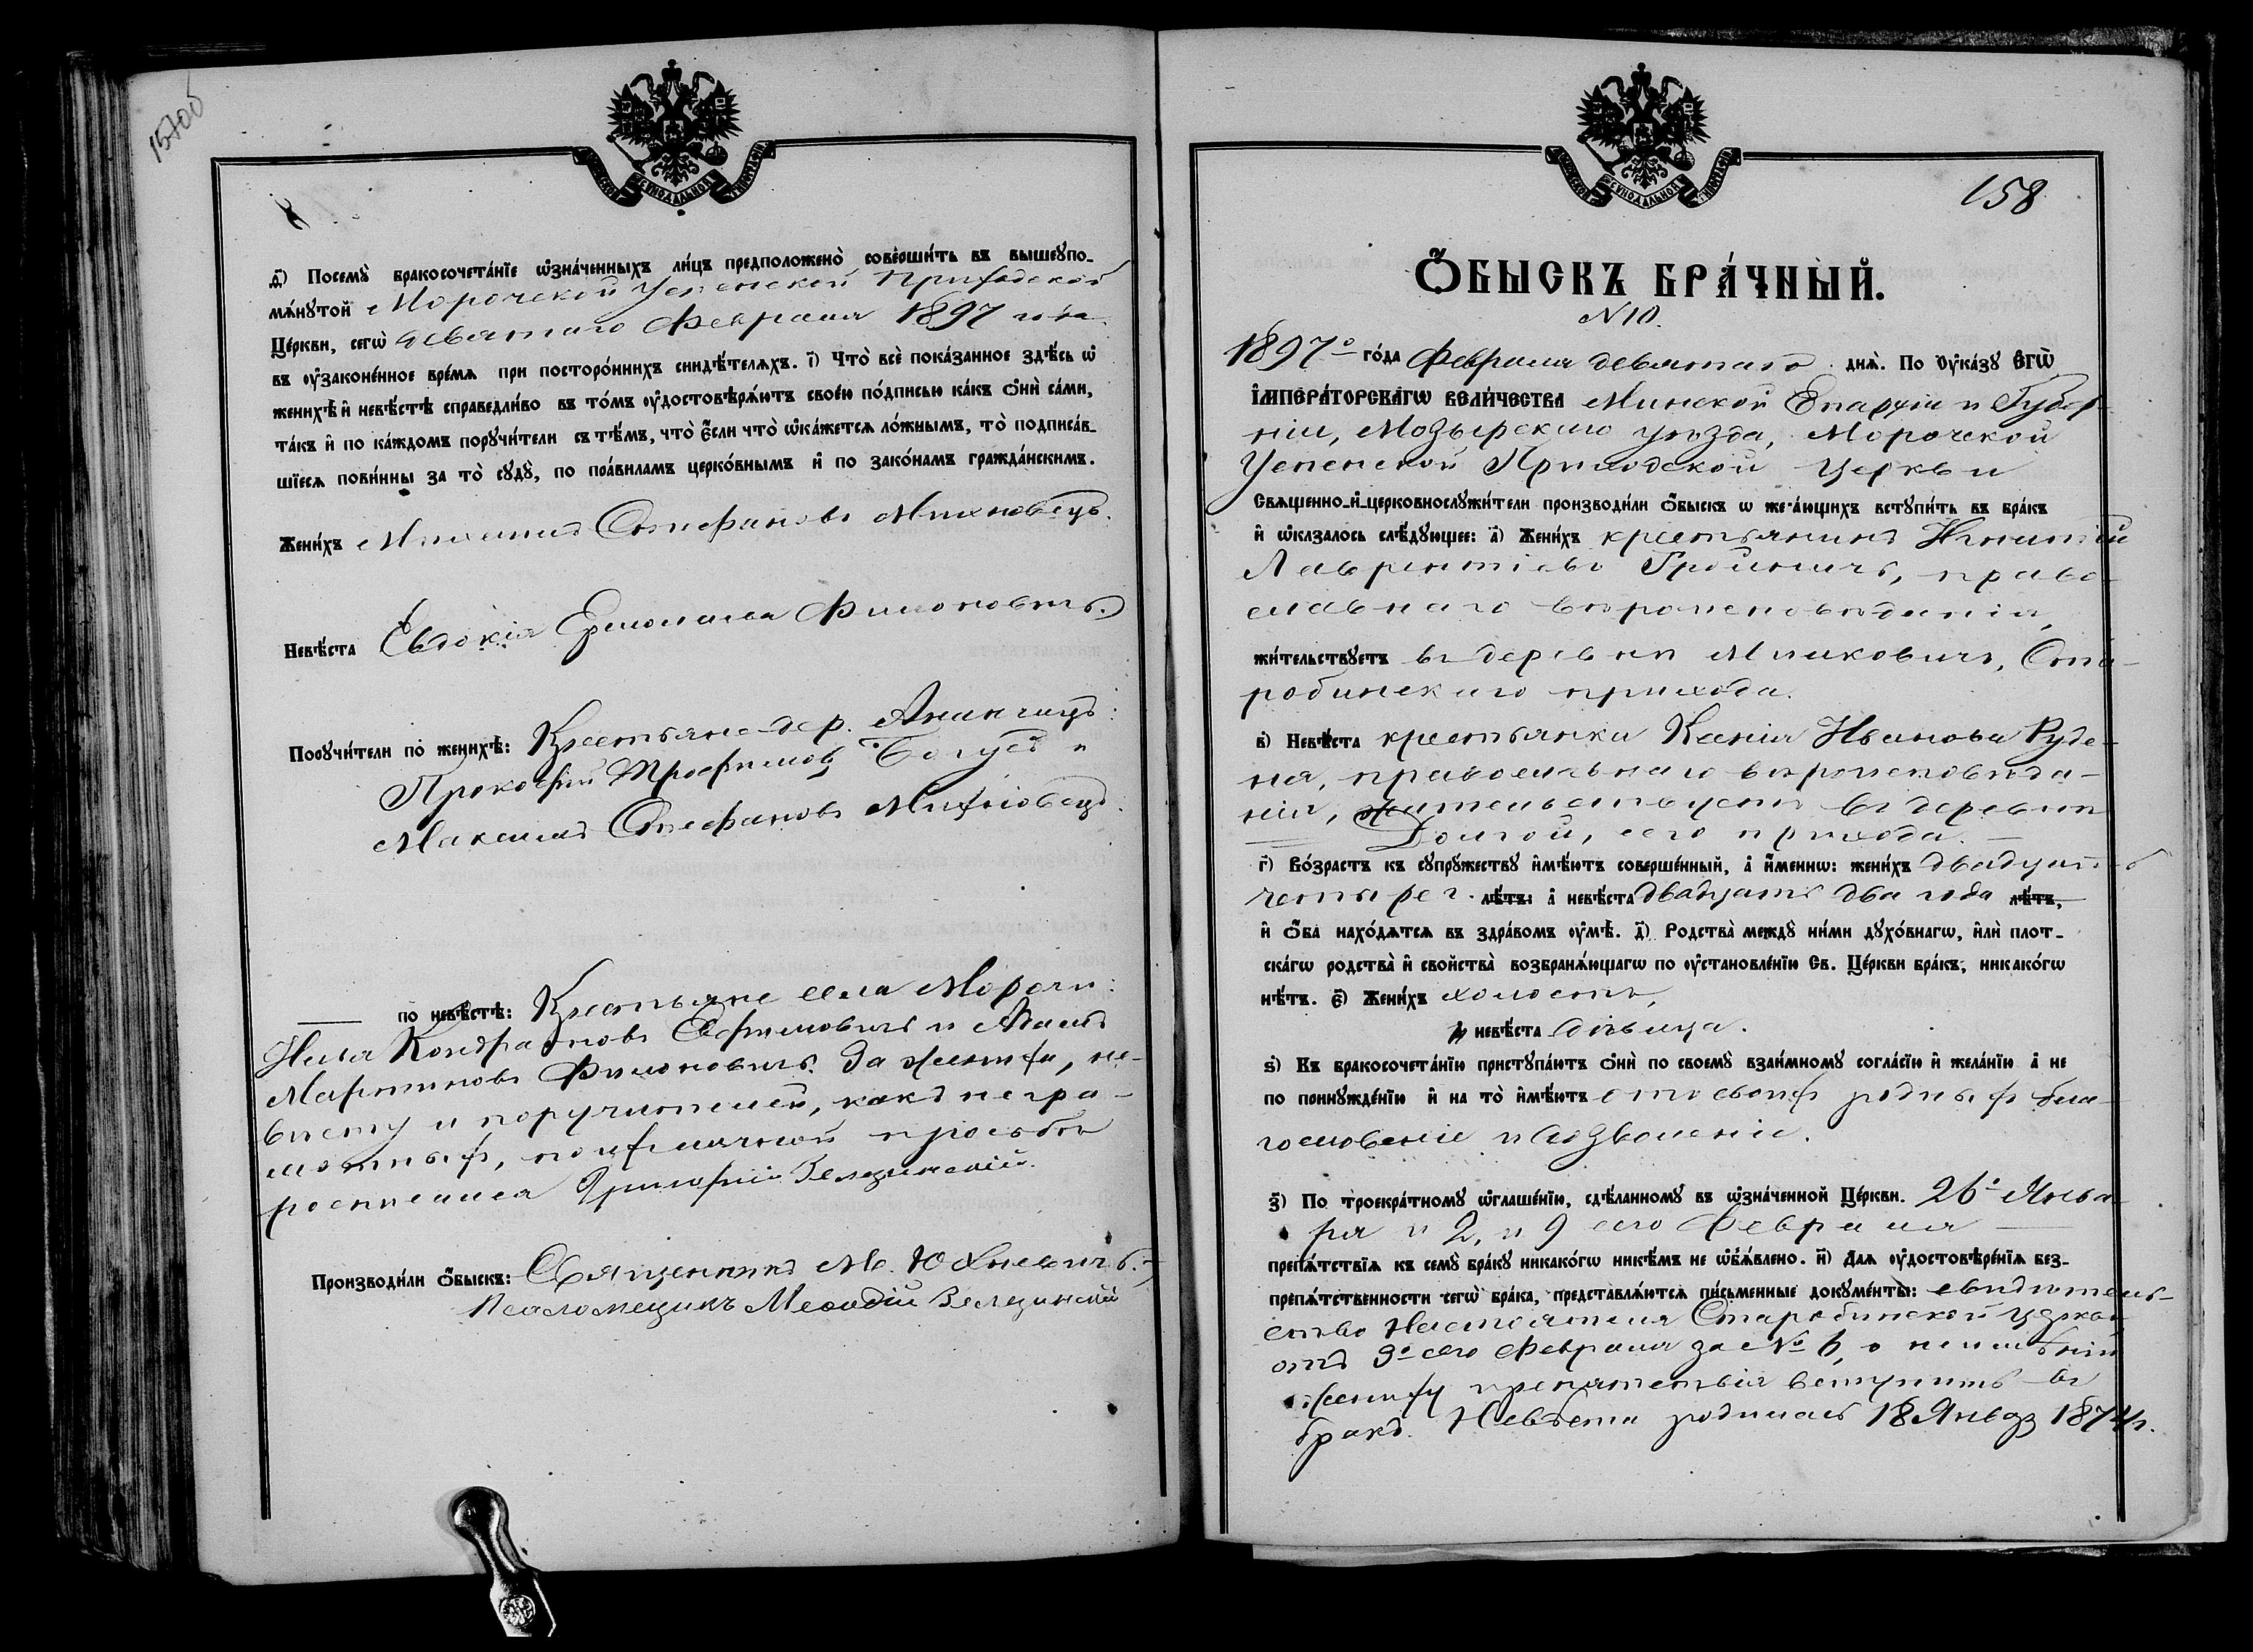 157об
ѳ҃) Посемꙋ̀ бракосочета́нїе ѡ҆зна́ченныхъ ли́цъ предположено̀ соверши́ть въ вышеꙋпо-
мѧ́нꙋтой Морочской Успенской Приходской
Це́ркви, сегѡ̀ девятаго Февраля 1897 года
въ ᲂу҆законе́нное вре́мѧ при посторо́ннихъ свидѣ́телѧхъ. і҃) Что̀ всѐ пока́занное здѣ́сь ѡ҆
женихѣ̀ и҆ невѣ́стѣ справедли́во въ то́мъ ᲂу҆достовѣрѧ́ютъ свое́ю по́дписью ка́къ ѻ҆нѝ са́ми,
та́къ и҆ по ка́ждомъ порꙋчи́тели съ тѣ́мъ, что̀ є҆́сли что̀ ѡ҆ка́жетсѧ ло́жнымъ, то̀ подписа́в-
шїесѧ пови́нны за то̀ сꙋдꙋ̀, по пра́виламъ церко́внымъ и҆ по зако́намъ гражда́нскимъ.
Жени́хъ Михаилъ Стефановъ Михновецъ.
Невѣ́ста Евдокія Ермолаева Филоновичъ.
Порꙋчи́тели по женихѣ̀: Крестьяне дер. Ананчицъ:
Прокофій Трофимовъ Богушъ и
Максимъ Стефановъ Михновецъ.
по невѣ́стѣ: Крестьяне села Морочи:
Илья Кондратовъ Ефимовичъ и Адамъ
Мартиновъ Филоновичъ. За жениха, не-
вѣсту и поручителей, какъ негра-
мотныхъ, по ихъ личной просьбѣ
росписался Григорій Зелезинскій.
Производи́ли ѻ҆́быскъ: Священникъ М. Юхневичъ.
Псаломщикъ Меѳодій Зелезинскій
158
Ѻ҆́БЫСКЪ БРА́ЧНЫЙ.
N 10.
1897го го́да Февраля девятаго днѧ̀. По ᲂу҆ка́зꙋ Є҆ГѠ̀
І҆МПЕРА́ТОРСКАГѠ ВЕЛИ́ЧЕСТВА Минской Епархіи и Губер-
ніи, Мозырскаго уѣзда, Морочской
Успенской Приходской Церкви
Свѧщенно-и҆-церковнослꙋжи́тели производи́ли ѻ҆́быскъ ѡ жела́ющихъ встꙋпи́ть въ бра́къ
и҆ ѡ҆каза́лось слѣ́дꙋющее: а҃) Жени́хъ крестьянинъ Игнатій
Лаврентіевъ Гройничъ, право-
славнаго вѣроисповѣданія,
жи́тельствꙋетъ въ деревнѣ Милковичъ, Ста-
робинскаго прихода.
в҃) Невѣ́ста крестьянка Ксенія Иванова Руде-
ня, православнаго вѣроисповѣда-
нія, жительствуетъ въ деревнѣ
Долгой, сего прихода.
г҃) Во́зрастъ къ сꙋпрꙋ́жествꙋ и҆мѣ́ютъ соверше́нный, а҆ и҆́менно: жени́хъ двадцать
четыре г. лѣ́тъ: а҆ невѣ́ста двадцать два года лѣ́тъ,
и҆ ѻ҆́ба нахо́дѧтсѧ въ здра́вомъ ᲂу҆мѣ̀. д҃) Родства̀ междꙋ̀ ни́ми дꙋхо́внагѡ, и҆лѝ плот-
ска́гѡ родства̀ и҆ сво́йства возбранѧ́ющагѡ по ᲂу҆становле́нїю Св. Це́ркви бра́къ, никако́гѡ
нѣ́тъ. є҃) Жени́хъ холостъ,
и҆ невѣ́ста дѣвица.
ѕ҃) Къ бракосочета́нїю пристꙋпа́ютъ ѻ҆нѝ по своемꙋ̀ взаи́мномꙋ согла́сїю и҆ жела́нїю а҆ не
по принꙋжде́нїю и҆ на то̀ и҆мѣ́ютъ отъ своихъ родныхъ бла-
гословеніе и дозволеніе.
з҃) По троекра́тномꙋ ѡ҆глаше́нїю, сдѣ́ланномꙋ въ ѡ҆зна́ченной Це́ркви. 26го Янва-
ря и 2, и 9 сего Февраля
препѧ́тствїѧ къ семꙋ̀ бра́кꙋ никако́гѡ никѣ́мъ не ѡ҆б̾ѧ́влено. и҃) Длѧ ᲂу҆достовѣре́нїѧ без-
препѧ́тственности сегѡ̀ бра́ка, представлѧ́ютсѧ пи́сьменные докꙋме́нты: свидѣтель-
ство Настоятеля Старобинской церкви
отъ 9го сего Февраля за № 6, о неимѣніи
жениху препятствія вступить въ
бракъ. Невѣста родилась 18 Январ 1874 г.